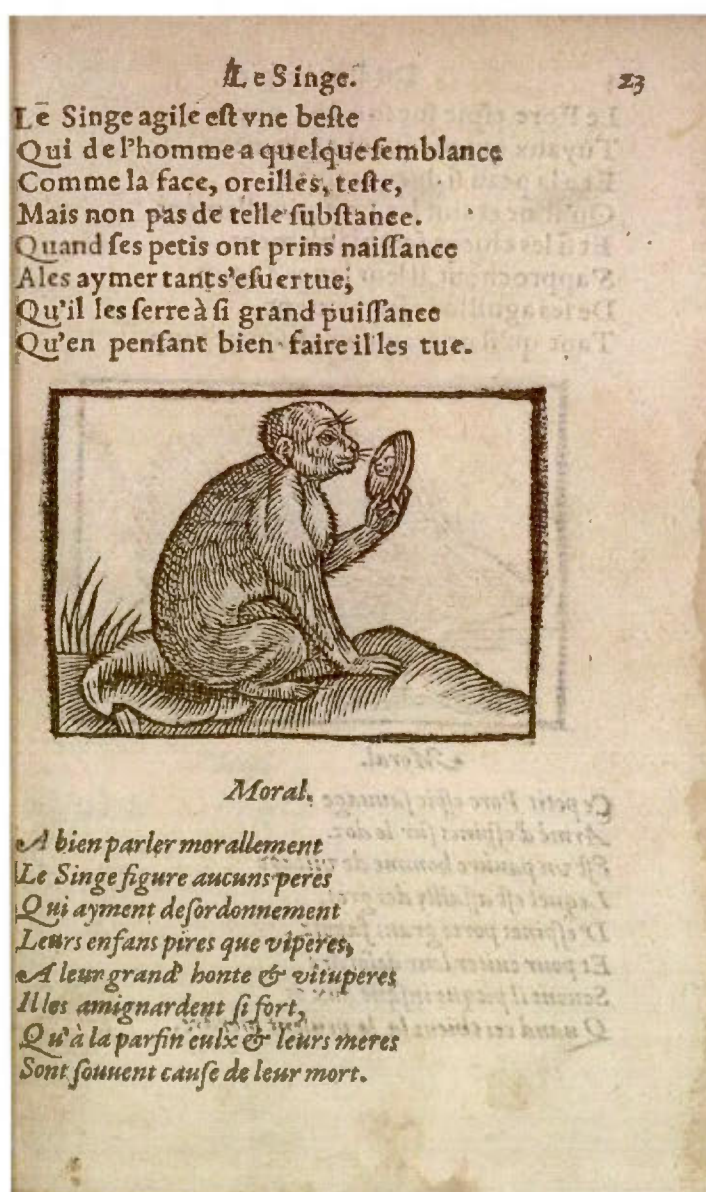 Le Singe. 23
Le Singe agile eſt vne beſte
Qui de l'homme a quelque ſemblance
Comme la face, oreilles, teſte,
Mais non pas de telle ſubſtance.
Quand ſes petis ont prins naiſſance
A les aymer tant s'eſuertue,
Qu'il les ſerre à ſi grand puiſſance
Qu'en penſant bien faire il les tue.
Moral.
A bien parler morallement
Le Singe figure aucuns peres
Qui ayment deſordonnement
Leurs enfans pires que viperes,
A leur grand' honte & vituperes
Il les amignardent ſi fort,
Qu'à la parfin eulx & leurs meres
Sont ſouuent cauſe de leur mort.